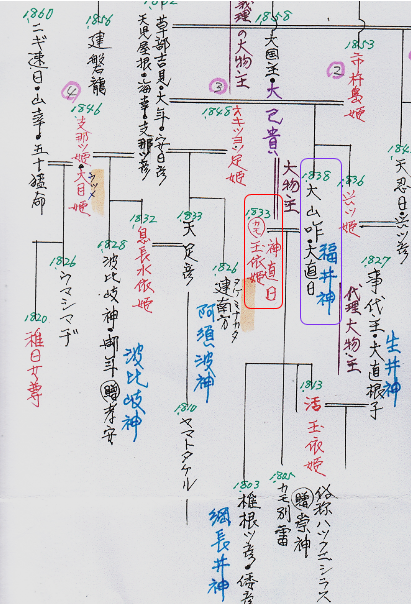 1853
市杵島姫
②
1858
大国主・大己貴
代理の大物主
③
草部吉見・大年・安日彦
天児屋根・海幸・支那ツ彦
1856
建磐龍
1860
ニギ速日・山幸・五十猛
天忍日・
1836
大物主
1838
大山咋・大直日
福井神
代理大物主
1827
事代主・大直根子
生井神
1848
1833
神直日
玉依姫
④
1846
支那ツ姫・大日姫
ウツメ
1833
天足彦
1826
建南方
タケミナカタ
阿須波神
1832
息長水依姫
1828
波比岐神・
孝安
波比岐神
1826
ウマシマヂ
1820
稚日女尊
1813
活玉依姫
俗称ハツクニシラス
贈崇神
1805
カモ別雷
1803
椎根ツ彦・倭彦
綱長井神
1810
ヤマトタケル